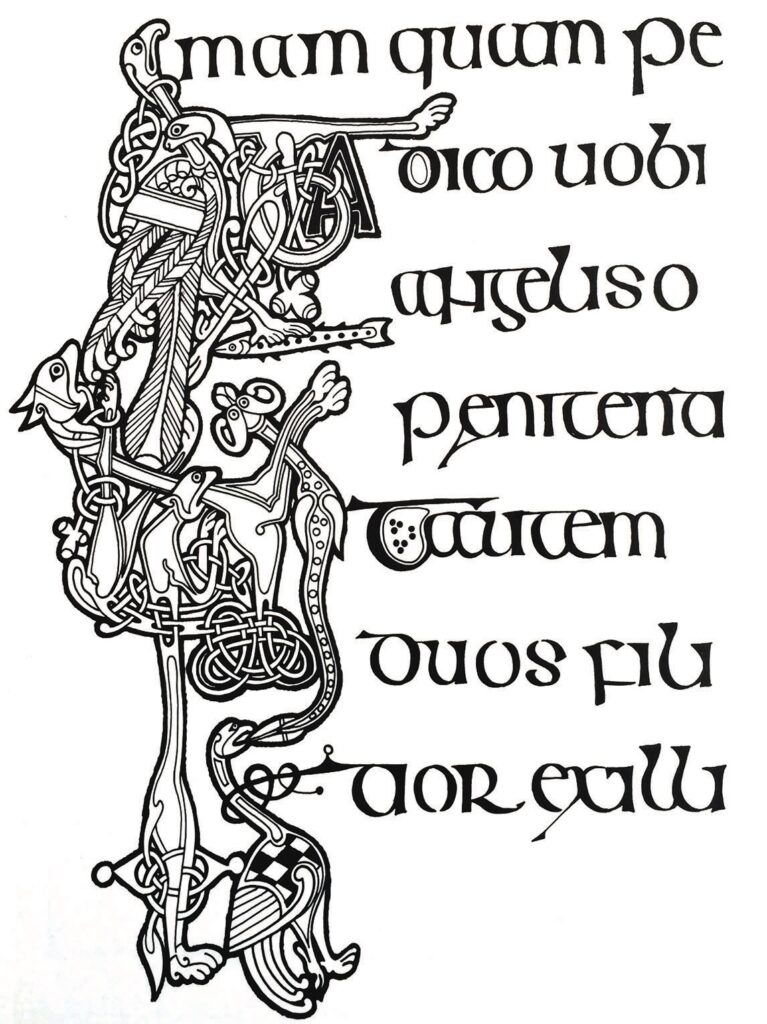 mam quam pe
A dico uobi
angeliso
penitenta
t autem
duos fili
tior exilli